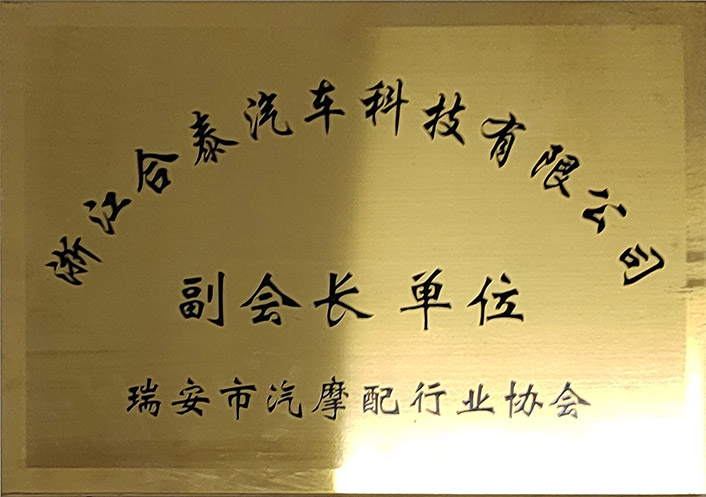 浙江合泰汽车科技有限公司
副会长单位
瑞安市汽摩配行业协会